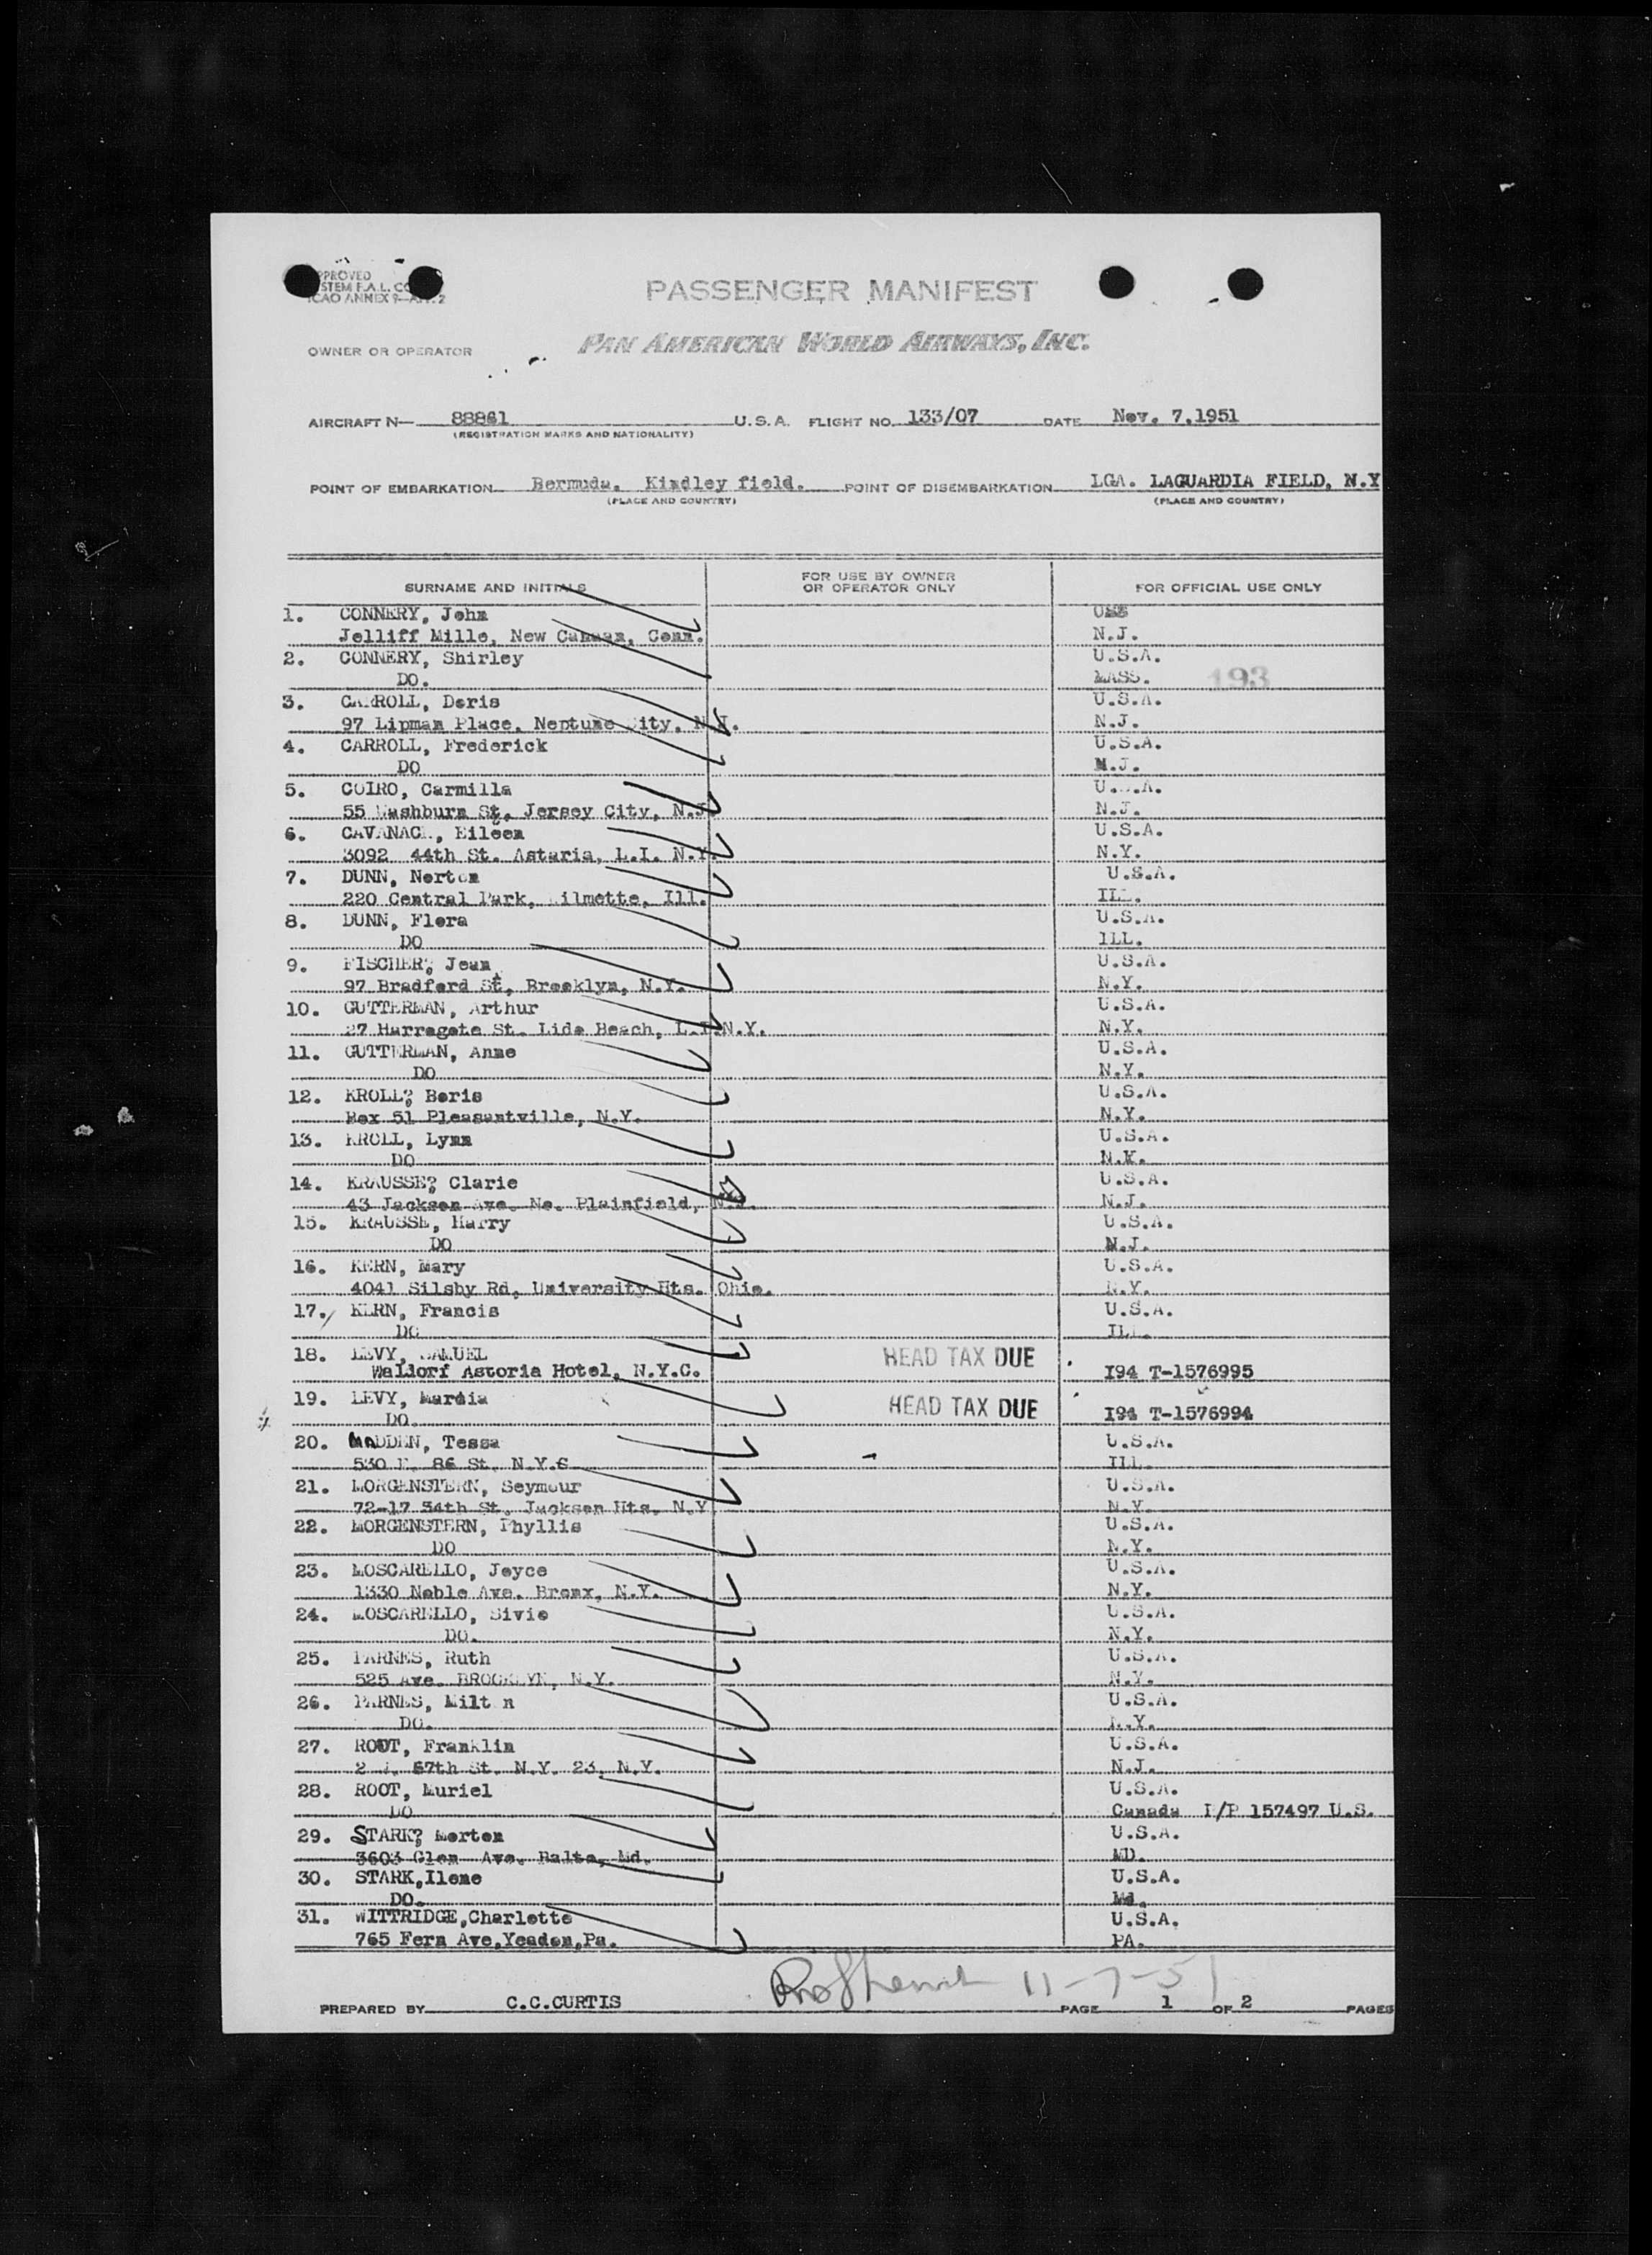 APPROVED
SYSTEM F.A.L. CO
ICAO ANNEX 9— 2
PASSENGER MANIFEST
OWNER OR OPERATOR
PAN AMERICAN WORLD AIRWAYS, INC.
AIRCRAFT N— 88861 U.S.A. FLIGHT NO. 133/07 DATE Nov. 7.1951
(REGISTRATION MARKS AND NATIONALITY)
POINT OF EMBARKATION Bermuda. Kindley field. POINT OF DISEMBARKATION LGA. LAGUARDIA FIELD, N.Y
(PLACE AND COUNTRY) (PLACE AND COUNTRY)
SURNAME AND INITIALS FOR USE BY OWNER OR OPERATOR ONLY FOR OFFICIAL USE ONLY
1. CONNERY, John
Jelliff Mille, New Canaan, Conn. N.J.
2. CONNERY, Shirley U.S.A.
DO. MASS. 193
3. CARROLL, Doris U.S.A.
97 Lipman Place, Neptune City, N.J. N.J.
4. CARROLL, Frederick U.S.A.
DO N.J.
5. COIRO, Carmilla U.S.A.
55 Washburn St, Jersey City, N.J N.J.
6. CAVANAC, Eileen U.S.A.
3092 44th St. Astoria, L.I. N.Y. N.Y.
7. DUNN, Norton U.S.A.
220 Central Park, Wilmette, Ill. ILL.
8. DUNN, Flora U.S.A.
DO ILL.
9. FISCHER, Jean U.S.A.
97 Bradford St, Brooklyn, N.Y. N.Y.
10. GUTTERMAN, Arthur U.S.A.
27 Harrogate St. Lido Beach, L.I.N.Y. N.Y.
11. GUTTERMAN, Anne U.S.A.
DO N.Y.
12. KROLL, Boris U.S.A.
Box 51 Pleasantville, N.Y. N.Y.
13. KROLL, Lynn U.S.A.
DO N.Y.
14. KRAUSSE, Clarie U.S.A.
43 Jackson Ave. No. Plainfield, N.J. N.J.
15. KRAUSSE, Harry U.S.A.
DO N.J.
16. KERN, Mary U.S.A.
4041 Silsby Rd, University Hts. Ohio. N.Y.
17. KERN, Francis U.S.A.
DO ILL.
18. LEVY, SAMUEL HEAD TAX DUE
Waldorf Astoria Hotel, N.Y.C. I94 T-1576995
19. LEVY, Mardia HEAD TAX DUE
DO. I94 T-1576994
20. MADDEN, Tessa U.S.A.
530 E. 86 St. N.Y.C ILL.
21. MORGENSTERN, Seymour U.S.A.
72-17 34th St. Jackson Hts. N.Y N.Y.
22. MORGENSTERN, Phyllis U.S.A.
DO N.Y.
23. MOSCARELLO, Joyce U.S.A.
1330 Noble Ave. Bronx, N.Y. N.Y.
24. MOSCARELLO, Sivio U.S.A.
DO. N.Y.
25. PARNES, Ruth U.S.A.
525 Ave. BROOKLYN, N.Y. N.Y.
26. PARNES, Milt n U.S.A.
DO. N.Y.
27. ROOT, Franklin U.S.A.
2 W. 67th St. N.Y. 23, N.Y. N.J.
28. ROOT, Muriel U.S.A.
DO Canada P/P 157497 U.S.
29. STARK, Morton U.S.A.
3603 Glen Ave. Balto, Md. MD.
30. STARK,Ilene U.S.A.
DO. Md.
31. WITTRIDGE,Charlotte U.S.A.
765 Fern Ave,Yeadon,Pa. PA.
11-7-51
PREPARED BY C.C.CURTIS PAGE 1 OF 2 PAGES